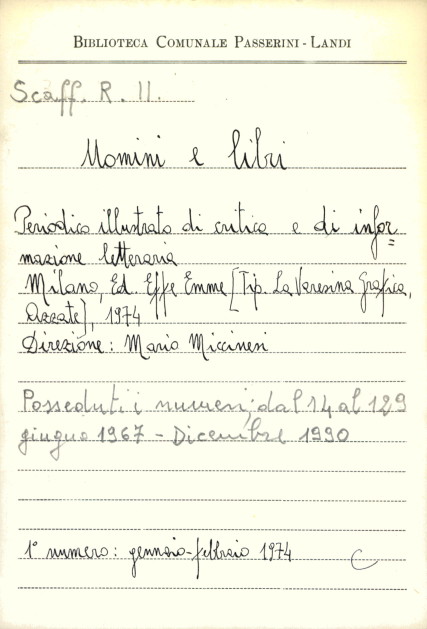 BIBLIOTECA COMUNALE PASSERINI - LANDI
Scaff. R. 11.
Uomini e libri
Periodico illustrato di critica e di infor=
mazione letteraria
Milano, Ed. Effe Emme [Tip. La Varesina Grafica,
Azzate], 1974
Direzione: Mario Miccinesi
Posseduti i numeri; dal 14 al 129
giugno 1967 - Dicembre 1990
1° numero: gennaio-febbraio 1974
C